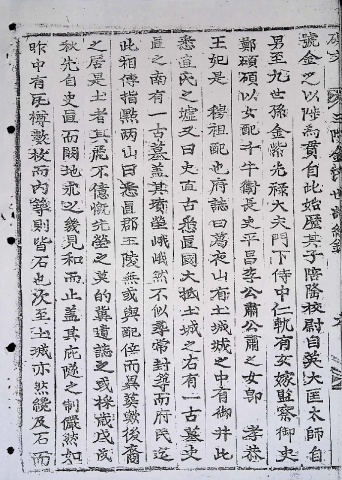 號金之以陟爲貫自此始歷其子陪隆校尉自英大匡太師自
男至九世孫金紫光祿大夫門下侍中仁軌有女嫁監察御史
鄭碩碩以女配千牛衛長史平昌李公肅公肅之女卽 孝恭
王妃是 穆祖配也府誌曰葛夜山有土城城之中有御井此
悉直氏之墟又曰史直古悉直國大抵土城之右有一古墓史
直之南有一古墓盖其墳塋峨峨然不似尋常封尊而府民迄
此相傳指點兩山曰悉直郡王陵無或與配位而異葬歟後裔
之居是土者其麗不億慨先塋之莫的兾遺誌之或採歲戊戌
秋先自史直而闢地永以幾見和而止盖其庇隧之制儼然如
昨中有瓦樽數枚而內簿則皆石也次至土城亦然纔及石而